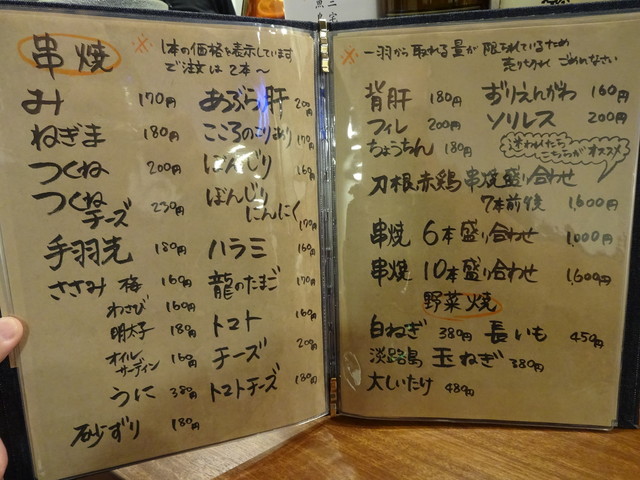 串焼
※1本の価格を表示しています
ご注文は2本〜
み 170円
ねぎま 180円
つくね 200円
つくねチーズ 230円
手羽先 180円
ささみ 梅 160円
わさび 160円
明太子 180円
オイルサーディン 160円
うに 380円
砂ずり 180円
あぶら肝 200円
こころのこりあり 170円
ぼんじり 160円
ぼんじりにんにく 170円
ハラミ 160円
龍のたまご 170円
トマト 160円
チーズ 200円
トマトチーズ 180円
※一羽から取れる量が限られているため
売り切れごめんなさい
背肝 180円 ずりえんがわ 160円
フィレ 200円 ソリレス 200円
ちょうちん 180円
迷われたら
こちらがオススメ
刀根赤鶏 串焼盛り合わせ
7本前後 1,600円
串焼 6本盛り合わせ 1,000円
串焼 10本盛り合わせ 1,600円
野菜焼
白ねぎ 380円 長いも 450円
淡路島玉ねぎ 380円
大しいたけ 480円